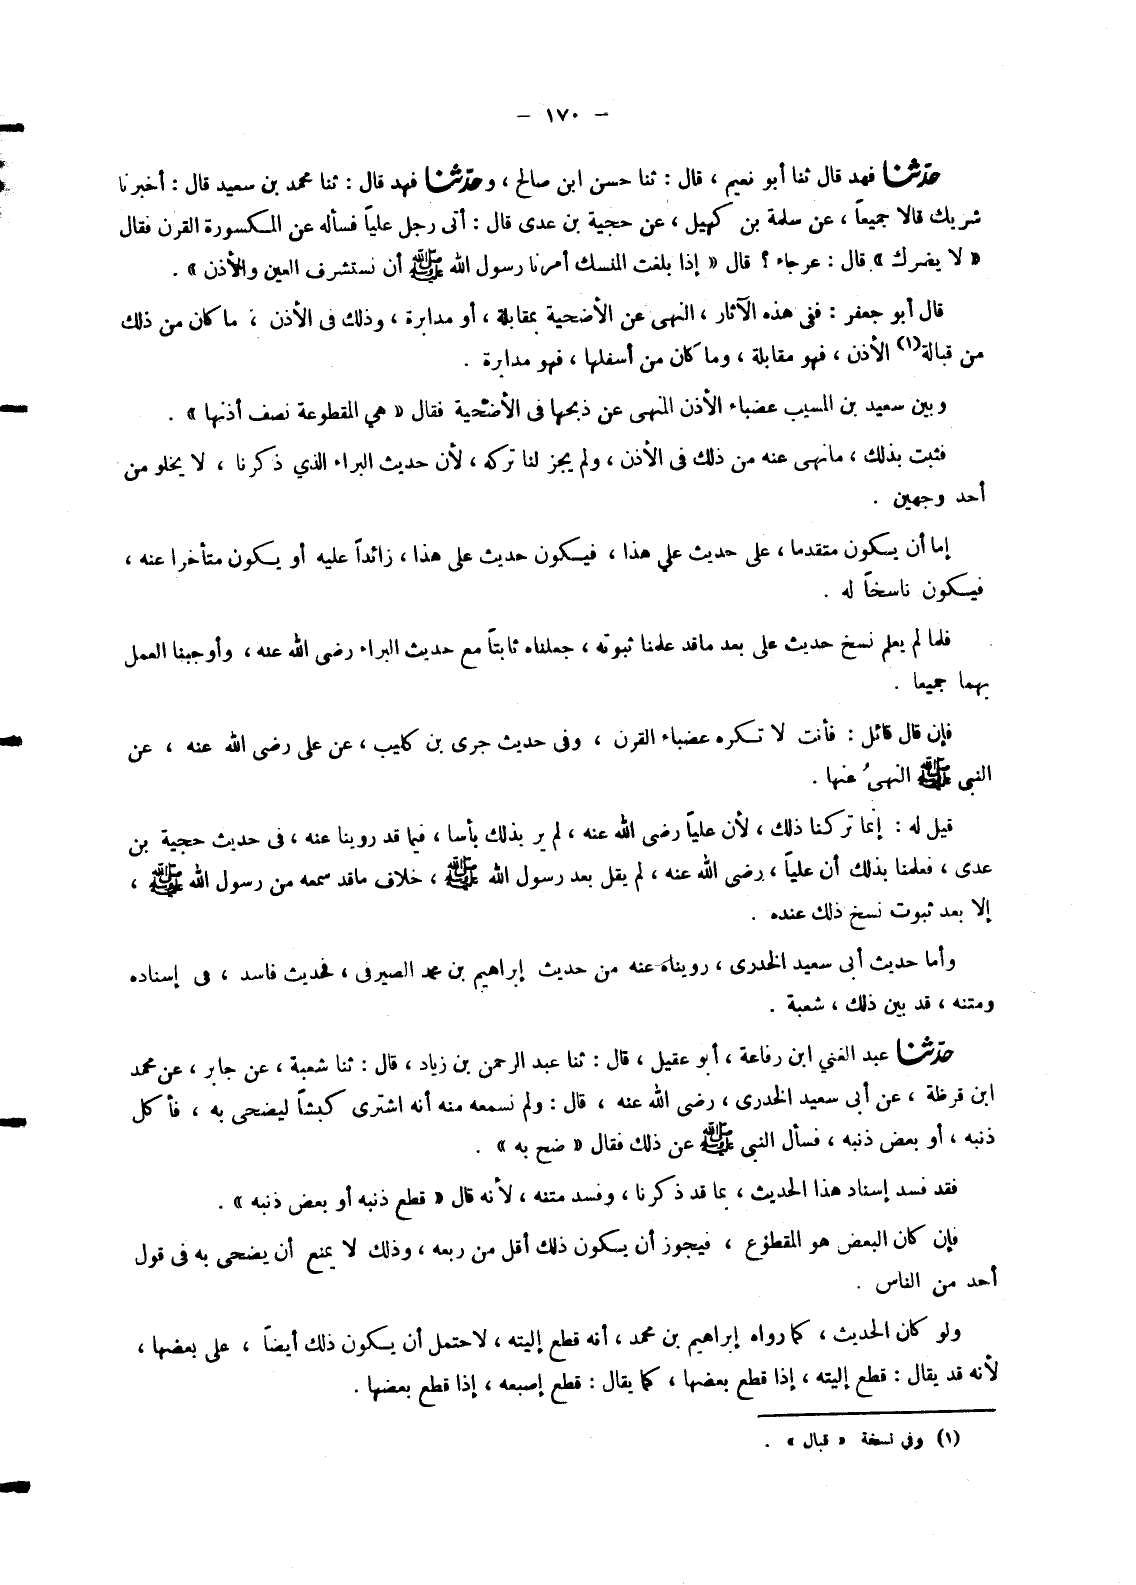 – ١٧٠ –
حدّثنا فهد قال ثنا أبو نعيم ، قال : ثنا حسن ابن صالح ، وحدّثنا فهد قال : ثنا محمد بن سعيد قال : أخبرنا
شريك قالا جميعاً ، عن سلمة بن كهيل ، عن حجية بن عدى قال : أتى رجل علياً فسأله عن المكسورة القرن فقال
« لا يضرك » قال : عرجاء ؟ قال « إذا بلغت المنسك أمرنا رسول الله ﷺ أن نستشرف العين والأذن » .
قال أبو جعفر : ففى هذه الآثار ، النهى عن الأضحية بمقابلة ، أو مدابرة ، وذلك فى الأذن ، ما كان من ذلك
من قبالة(١) الأذن ، فهو مقابلة ، وما كان من أسفلها ، فهو مدابرة .
وبين سعيد بن المسيب عضباء الأذن المنهى عن ذبحها فى الأضحية فقال « هي المقطوعة نصف أذنها » .
فثبت بذلك ، مانهى عنه من ذلك فى الأذن ، ولم يجز لنا تركه ، لأن حديث البراء الذي ذكرنا ، لا يخلو من
أحد وجهين .
إما أن يكون متقدما ، على حديث علي هذا ، فيكون حديث على هذا ، زائداً عليه أو يكون متأخرا عنه ،
فيكون ناسخاً له .
فلما لم يعلم نسخ حديث على بعد ماقد علمنا ثبوته ، جعلناه ثابتاً مع حديث البراء رضى الله عنه ، وأوجبنا العمل
بهما جميعا .
فإن قال قائل : فأنت لا تكره عضباء القرن ، وفى حديث جرى بن كليب ، عن على رضى الله عنه ، عن
النبى ﷺ النهىُ عنها .
قيل له : إنما تركنا ذلك ، لأن علياً رضى الله عنه ، لم ير بذلك بأسا ، فيما قد روينا عنه ، فى حديث حجية بن
عدى ، فعلمنا بذلك أن علياً ، رضى الله عنه ، لم يقل بعد رسول الله ﷺ ، خلاف ماقد سمعه من رسول الله ﷺ ،
إلا بعد ثبوت نسخ ذلك عنده .
وأما حديث أبى سعيد الخدرى ، رويناه عنه من حديث إبراهيم بن محمد الصيرفى ، فحديث فاسد ، فى إسناده
ومتنه ، قد بين ذلك ، شعبة .
حدّثنا عبد الغني ابن رفاعة ، أبو عقيل ، قال : ثنا عبد الرحمن بن زياد ، قال : ثنا شعبة ، عن جابر ، عن محمد
ابن قرظة ، عن أبى سعيد الخدرى ، رضى الله عنه ، قال : ولم نسمعه منه أنه اشترى كبشاً ليضحى به ، فأكل
ذنبه ، أو بعض ذنبه ، فسأل النبى ﷺ عن ذلك فقال « ضح به » .
فقد فسد إسناد هذا الحديث ، بما قد ذكرنا ، وفسد متنه ، لأنه قال « قطع ذنبه أو بعض ذنبه » .
فإن كان البعض هو المقطوع ، فيجوز أن يكون ذلك أقل من ربعه ، وذلك لا يمنع أن يضحى به فى قول
أحد من الناس .
ولو كان الحديث ، كما رواه إبراهيم بن محمد ، أنه قطع إليته ، لاحتمل أن يكون ذلك أيضاً ، على بعضها ،
لأنه قد يقال : قطع إليته ، إذا قطع بعضها ، كما يقال : قطع إصبعه ، إذا قطع بعضها .
(١) وفى نسخة « قبال » .